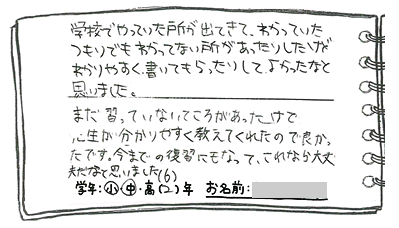 学校でやっていた所が出てきて、わかっていた
つもりでもわかってない所があったりしたけど
わかりやすく書いてもらったりしてよかったなと
思いました。
まだ習っていないところがあったけど
先生が分かりやすく教えてくれたので良かっ
たです。今までの復習にもなって、これなら大丈
夫だなと思いました(6)
学年:小・中・高(2)年 お名前: